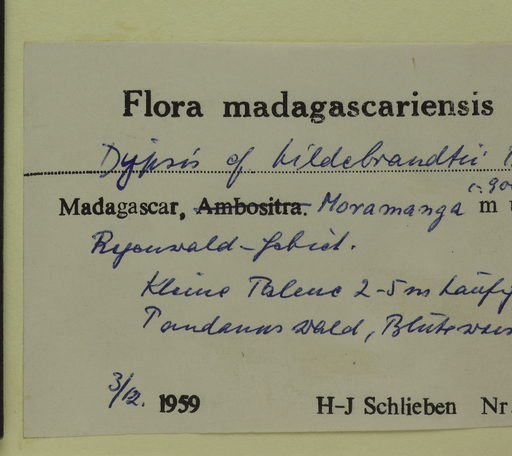 Flora madagascariensis
Dypsis cf hildebrandtii
Madagascar, Ambositra. Moramanga c. 900 m
Regenwald-Gebiet.
Kleine Palme 2-5 m häufig
Pandanus wald, Blüte weiss
3/12. 1959 H-J Schlieben Nr.